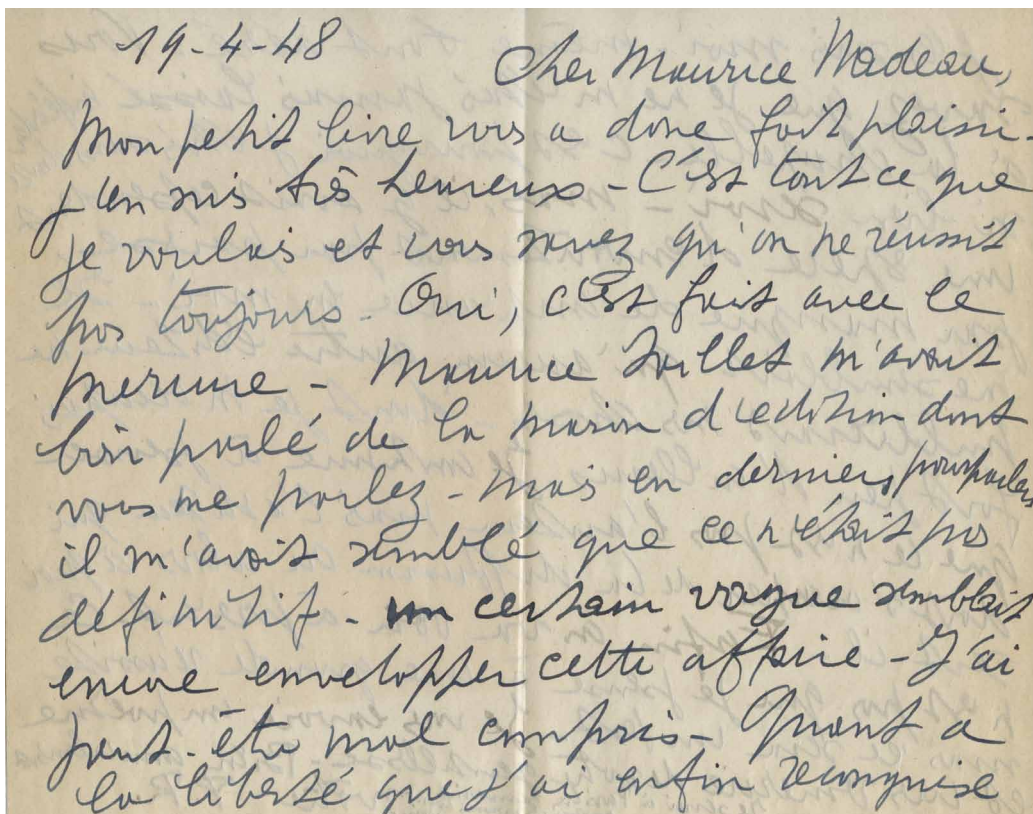 19-4-48
Cher Maurice Nadeau,
Mon petit livre vous a donc fait plaisir -
j'en suis très heureux - C'est tout ce que
je voulais et vous savez qu'on ne réussit
pas toujours - Oui, c'est fait avec le
Mercure - Maurice Saillet m'avait
bien parlé de la maison d'edition dont
vous me parlez - mais en derniers pourparlers
il m'avait semblé que ce n'était pas
définitif - un certain vague semblait
encore envelopper cette affaire - J'ai
peut-être mal compris - Quant a
la liberté que j'ai enfin reconquise